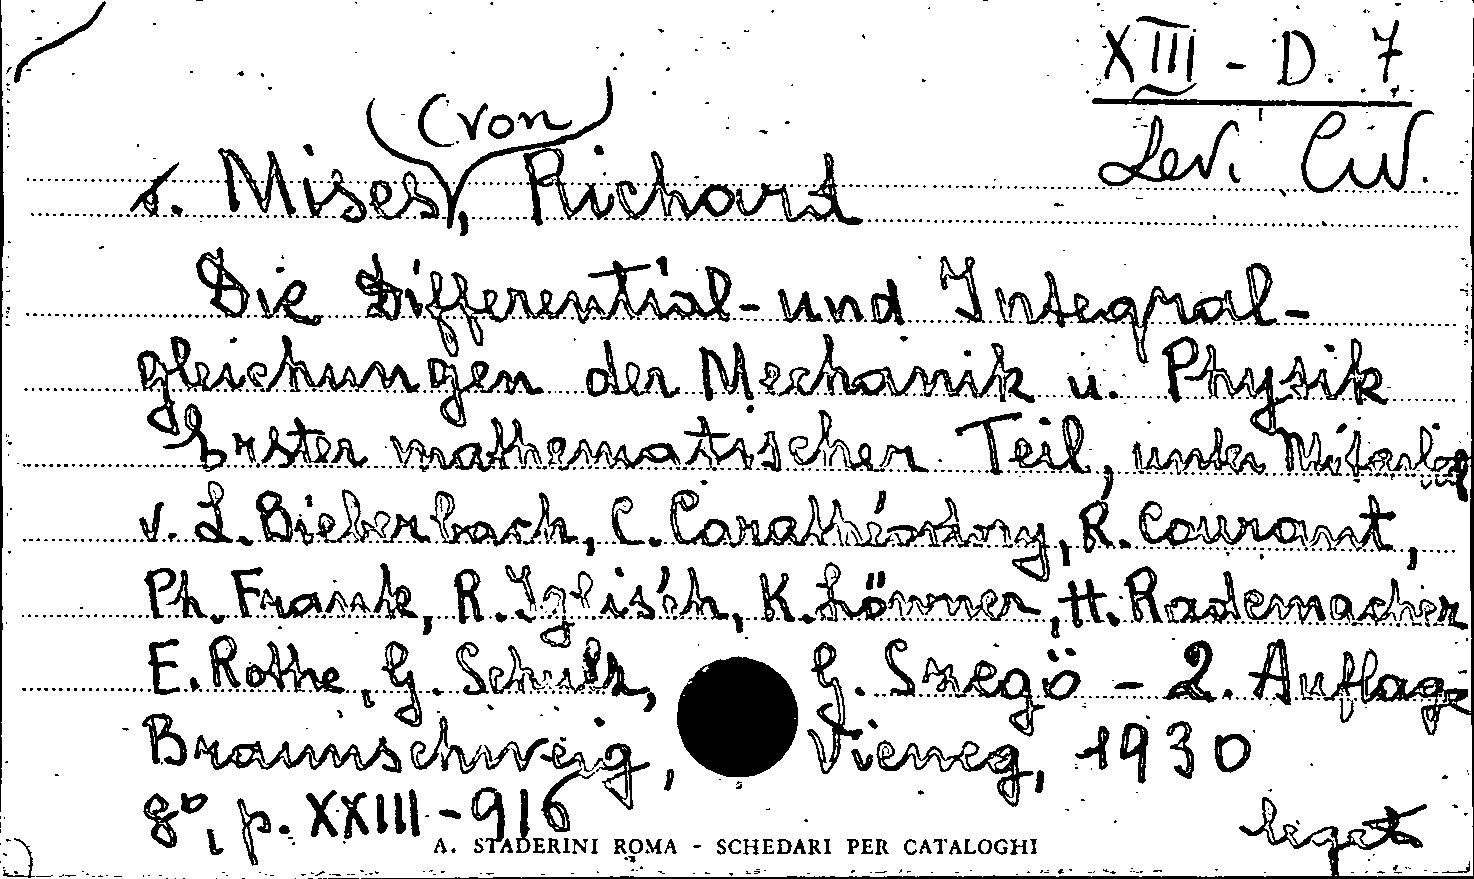 XIII - D. 7
Lev. Civ.
(von)
v. Mises, Richard
Die Differential- und Integral-
gleichungen der Mechanik u. Physik
Erster mathematischer Teil, unter Mitarbeit
v. L. Bieberbach, C. Carathéodory, R. Courant,
Ph. Frank, R. Iglisch, K. Löwner, H. Rademacher
E. Rothe, G. Schulz, G. Szegö - 2. Auflage
Braunschweig, Vieweg, 1930
8º, p. XXIII - 916
legato
A. STADERINI ROMA - SCHEDARI PER CATALOGHI